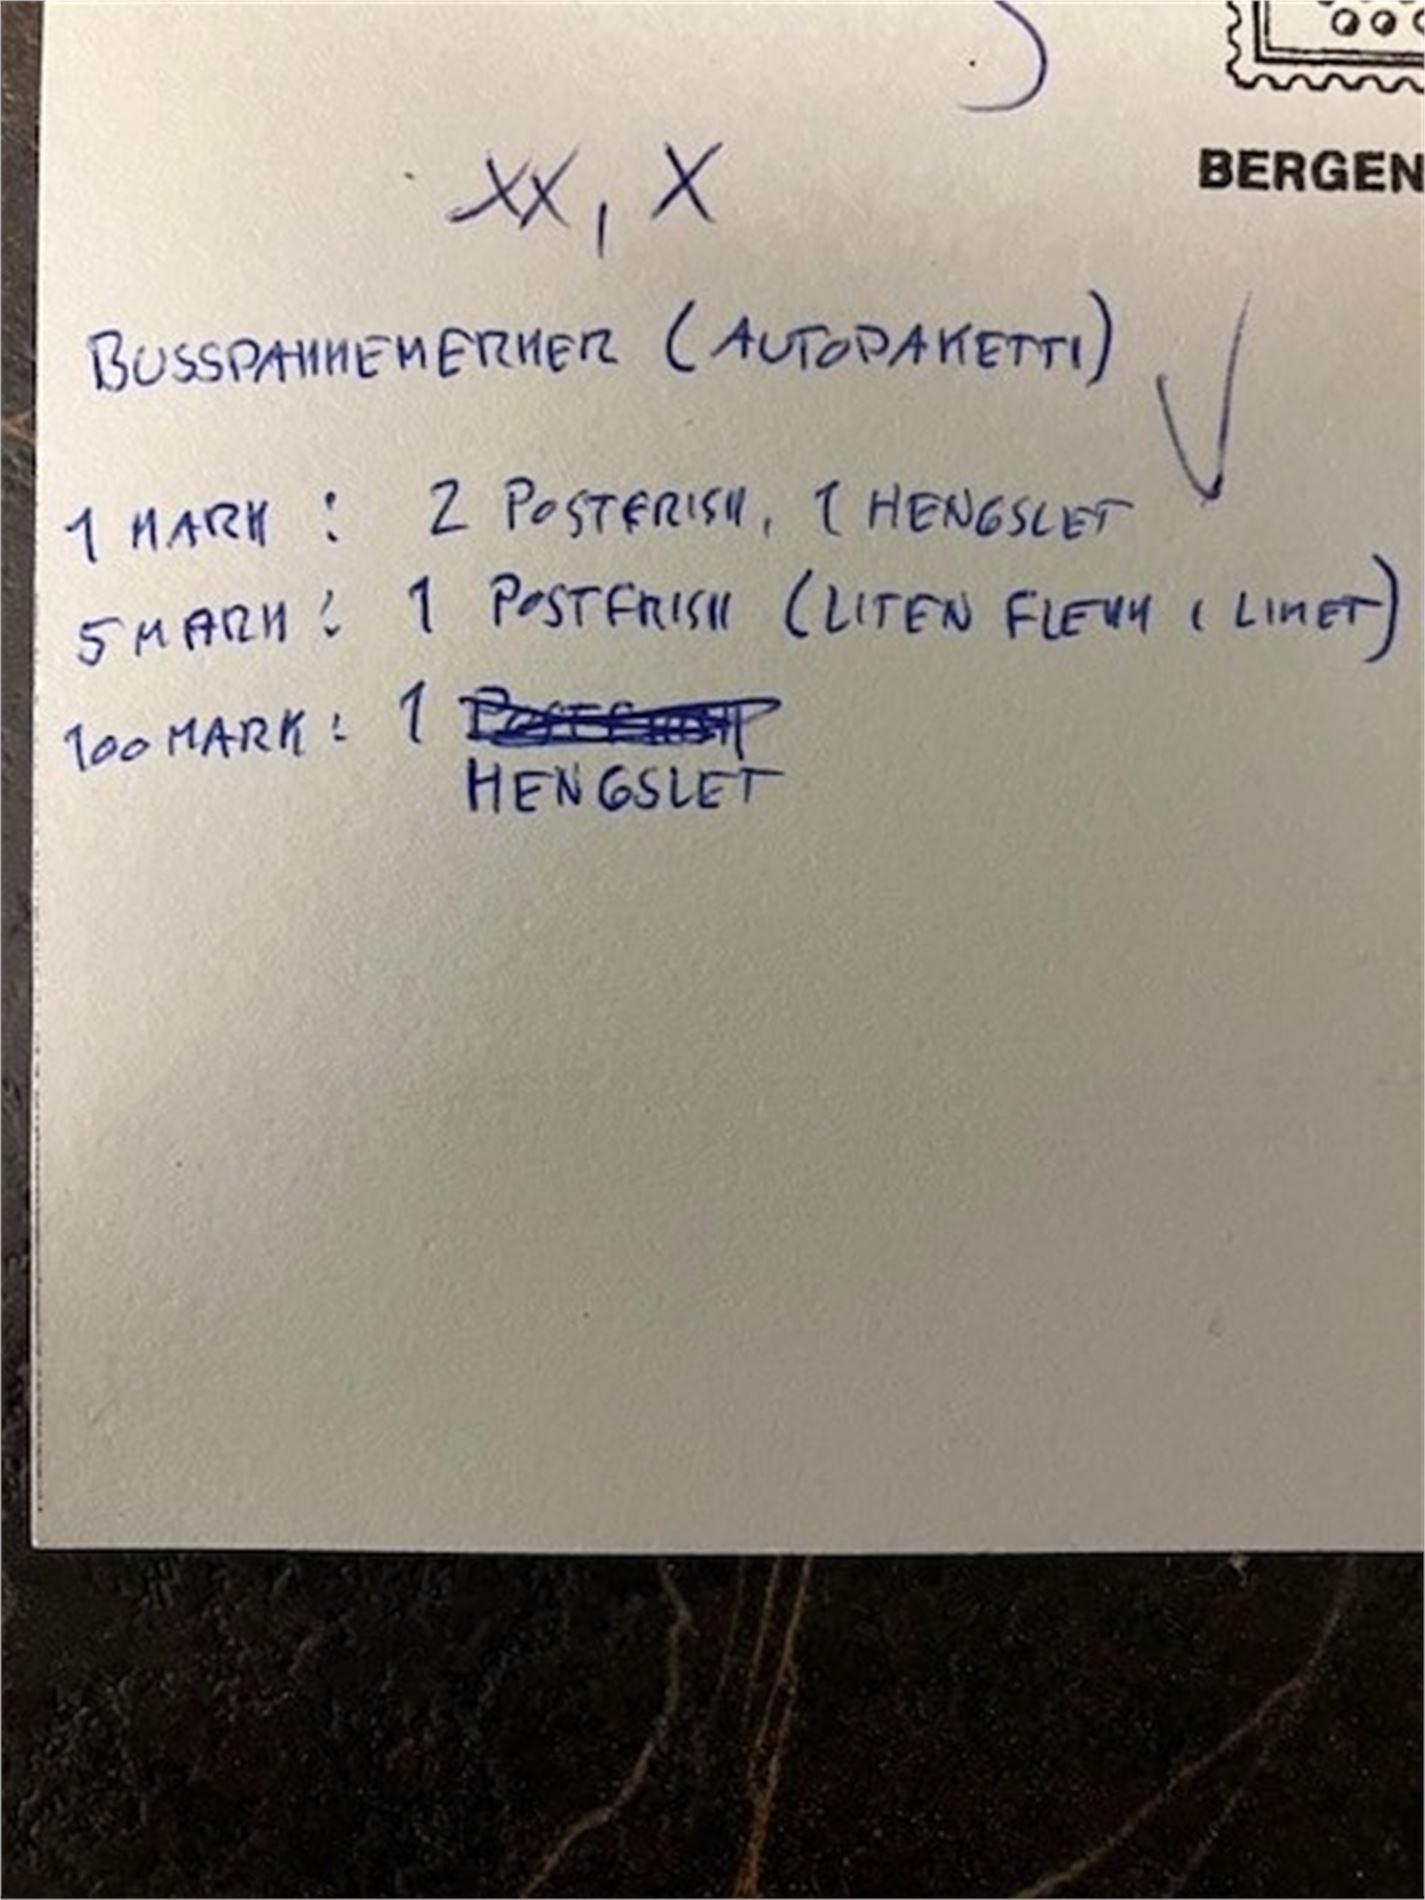 BERGEN
XX, X
BUSSPAKKEMERKER (AUTOPAKETTI)
1 MARK : 2 POSTFRISK, 1 HENGSLET
5 MARK : 1 POSTFRISK (LITEN FLEKK I LIMET)
100 MARK : 1
HENGSLET